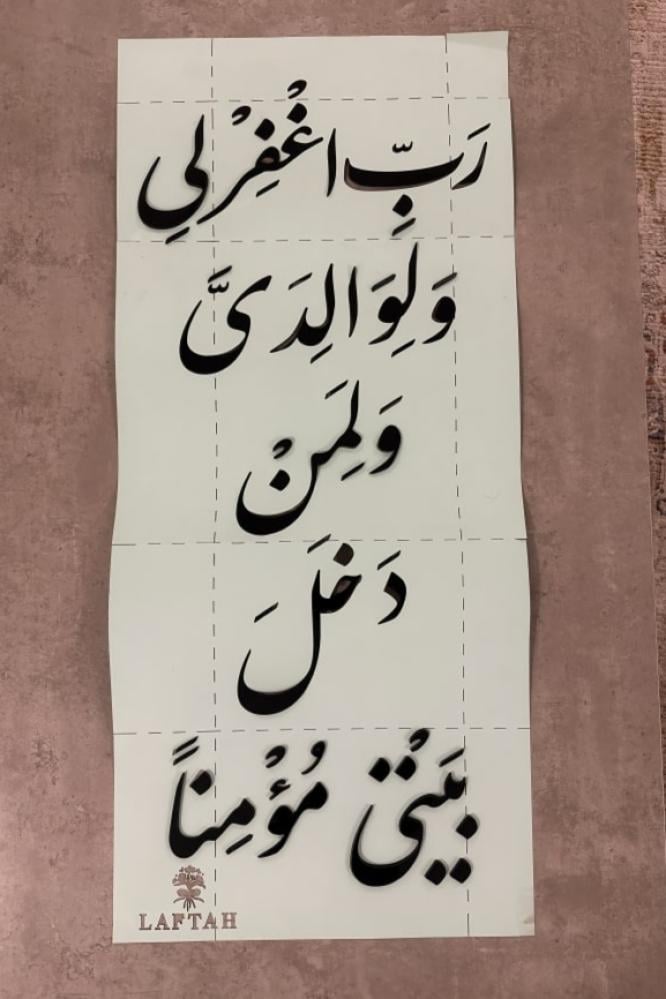 رَبِّ اغْفِرْ لِي
وَلِوَالِدَىَّ
وَلِمَنْ
دَخَلَ
بَيْتِى مُؤْمِناً
LAFTAH